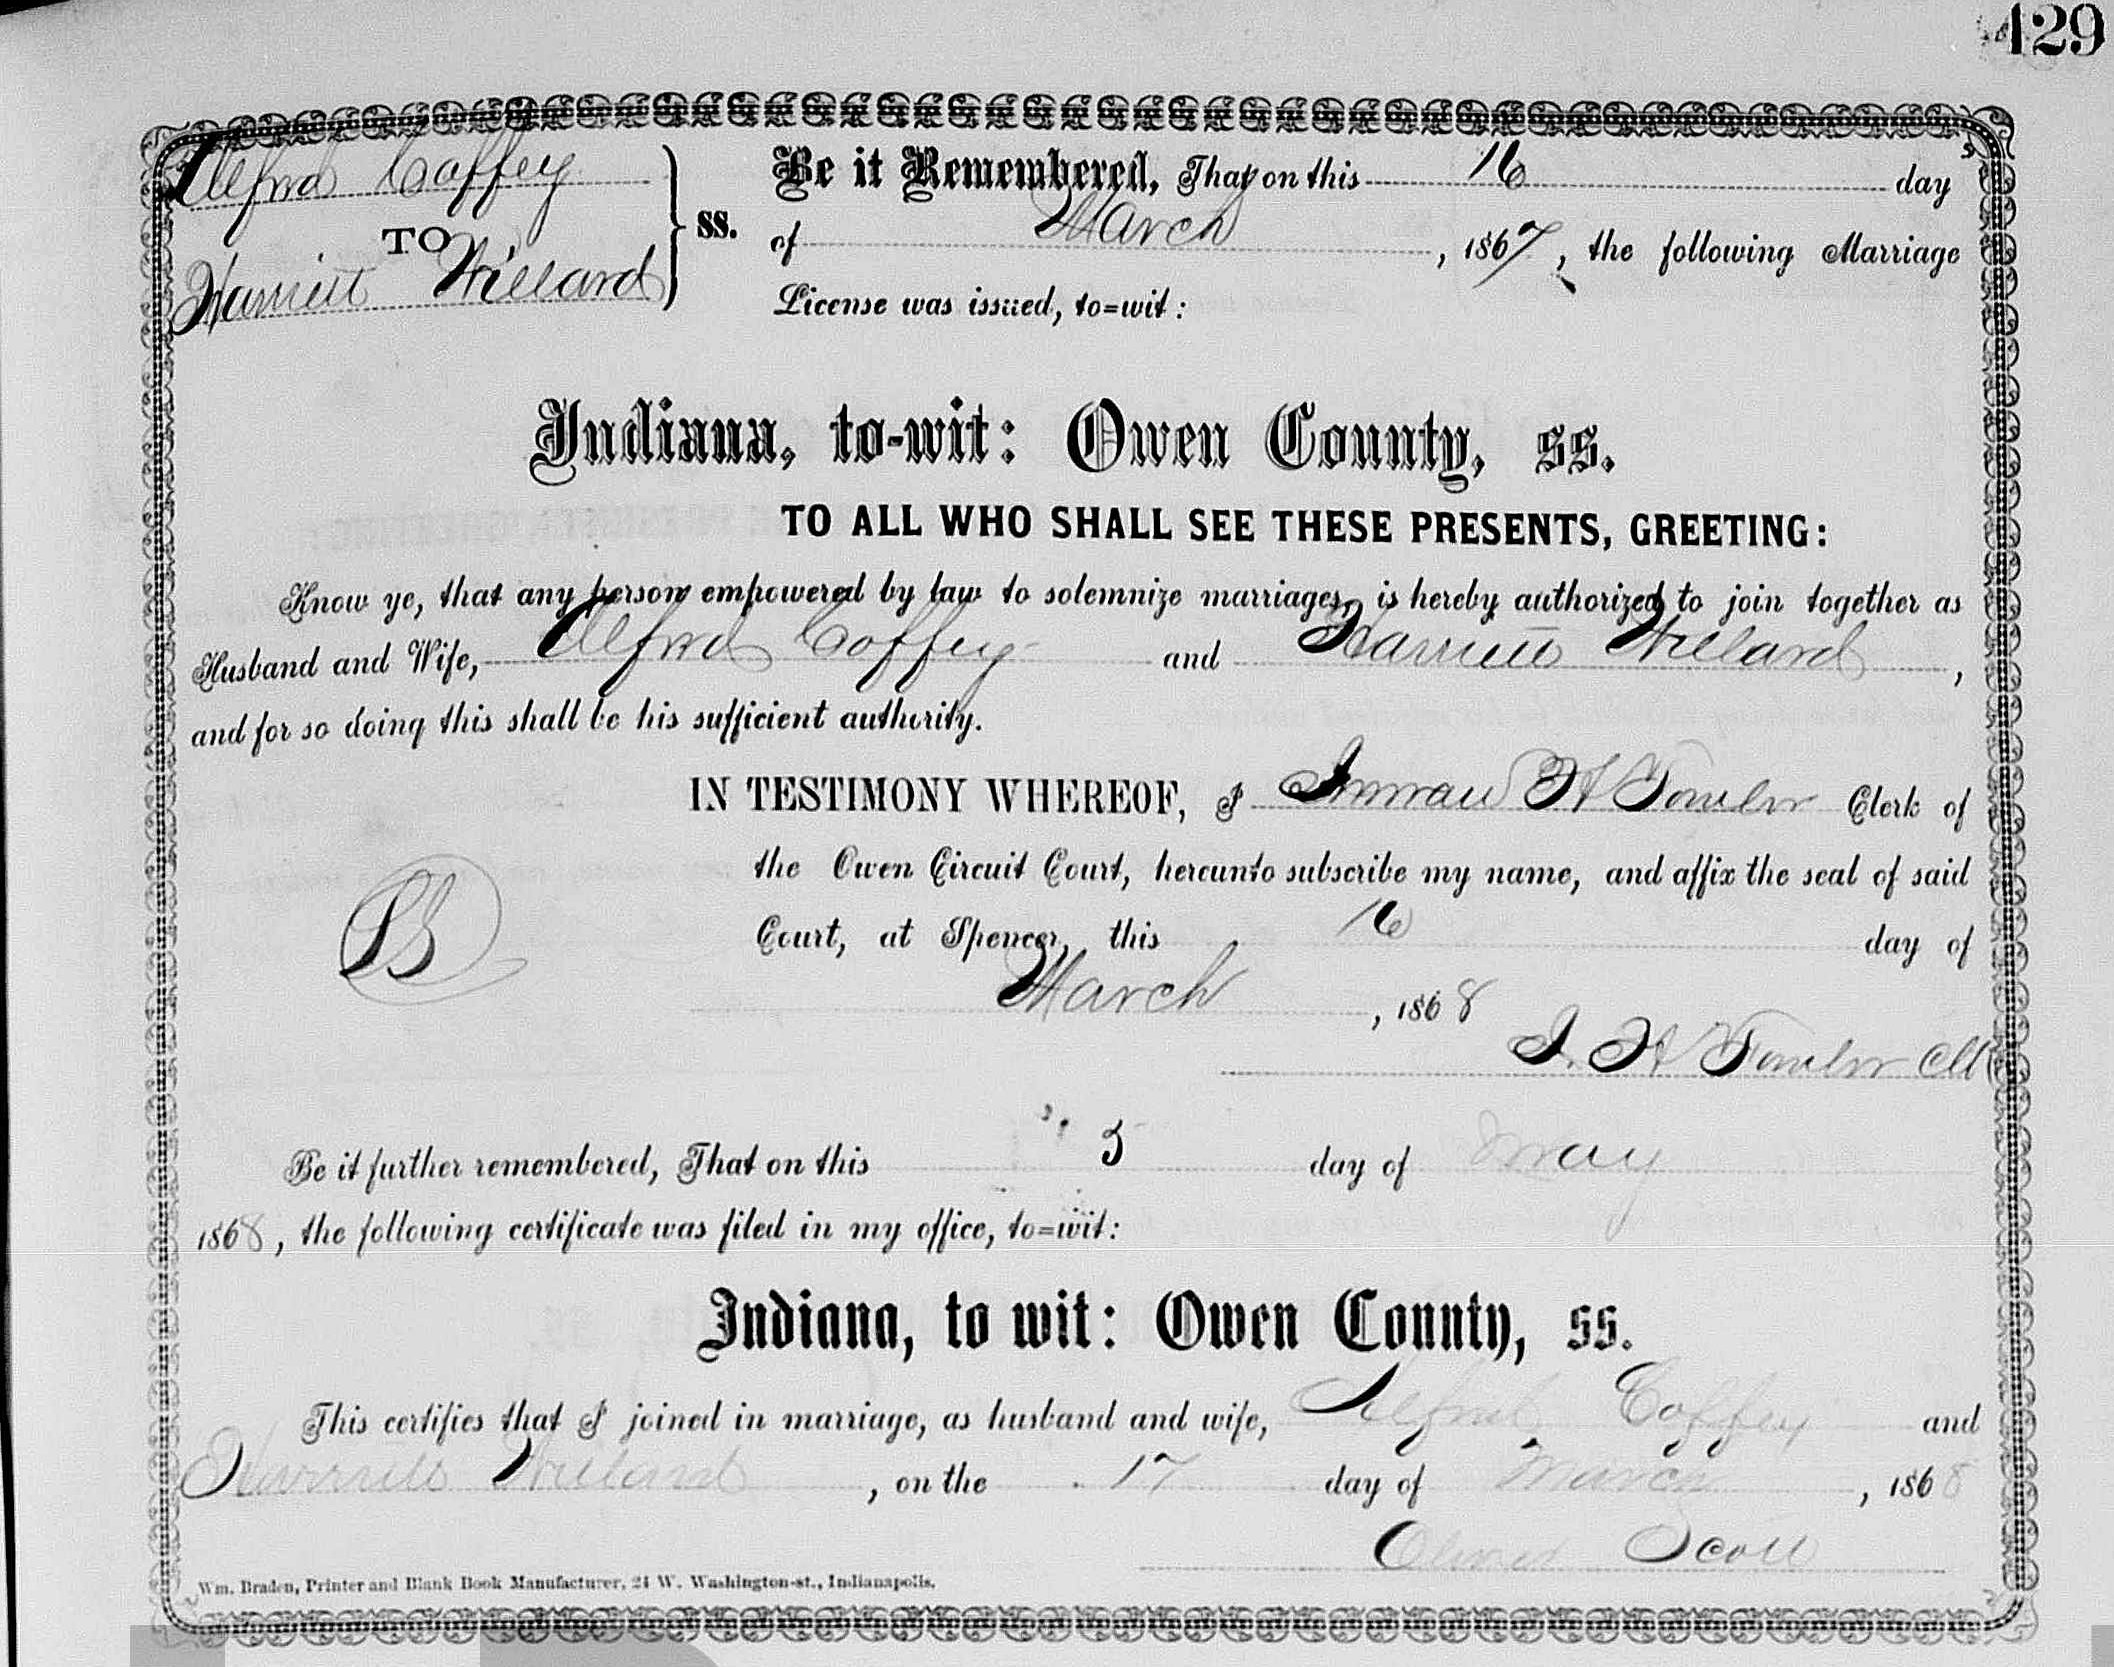 429
Alfred Coffey
TO
Harriett Willard
ss.
Be it Remembered, That on this 16 day
of March, 1867, the following Marriage
License was issued, to=wit:
Indiana, to-wit: Owen County, ss.
TO ALL WHO SHALL SEE THESE PRESENTS, GREETING:
Know ye, that any person empowered by law to solemnize marriages, is hereby authorized to join together as
Husband and Wife, Alfred Coffey and Harriett Willard,
and for so doing this shall be his sufficient authority.
IN TESTIMONY WHEREOF, I Inman H Fowler Clerk of
the Owen Circuit Court, hereunto subscribe my name, and affix the seal of said
LS
Court, at Spencer, this 16 day of
March, 1868
I. H Fowler Clk
Be it further remembered, That on this 5 day of May
1868, the following certificate was filed in my office, to=wit:
Indiana, to wit: Owen County, ss.
This certifies that I joined in marriage, as husband and wife, Alfred Coffey and
Harriett Willard, on the 17 day of March, 1868
Scott
Wm. Braden, Printer and Blank Book Manufacturer, 24 W. Washington-st., Indianapolis.